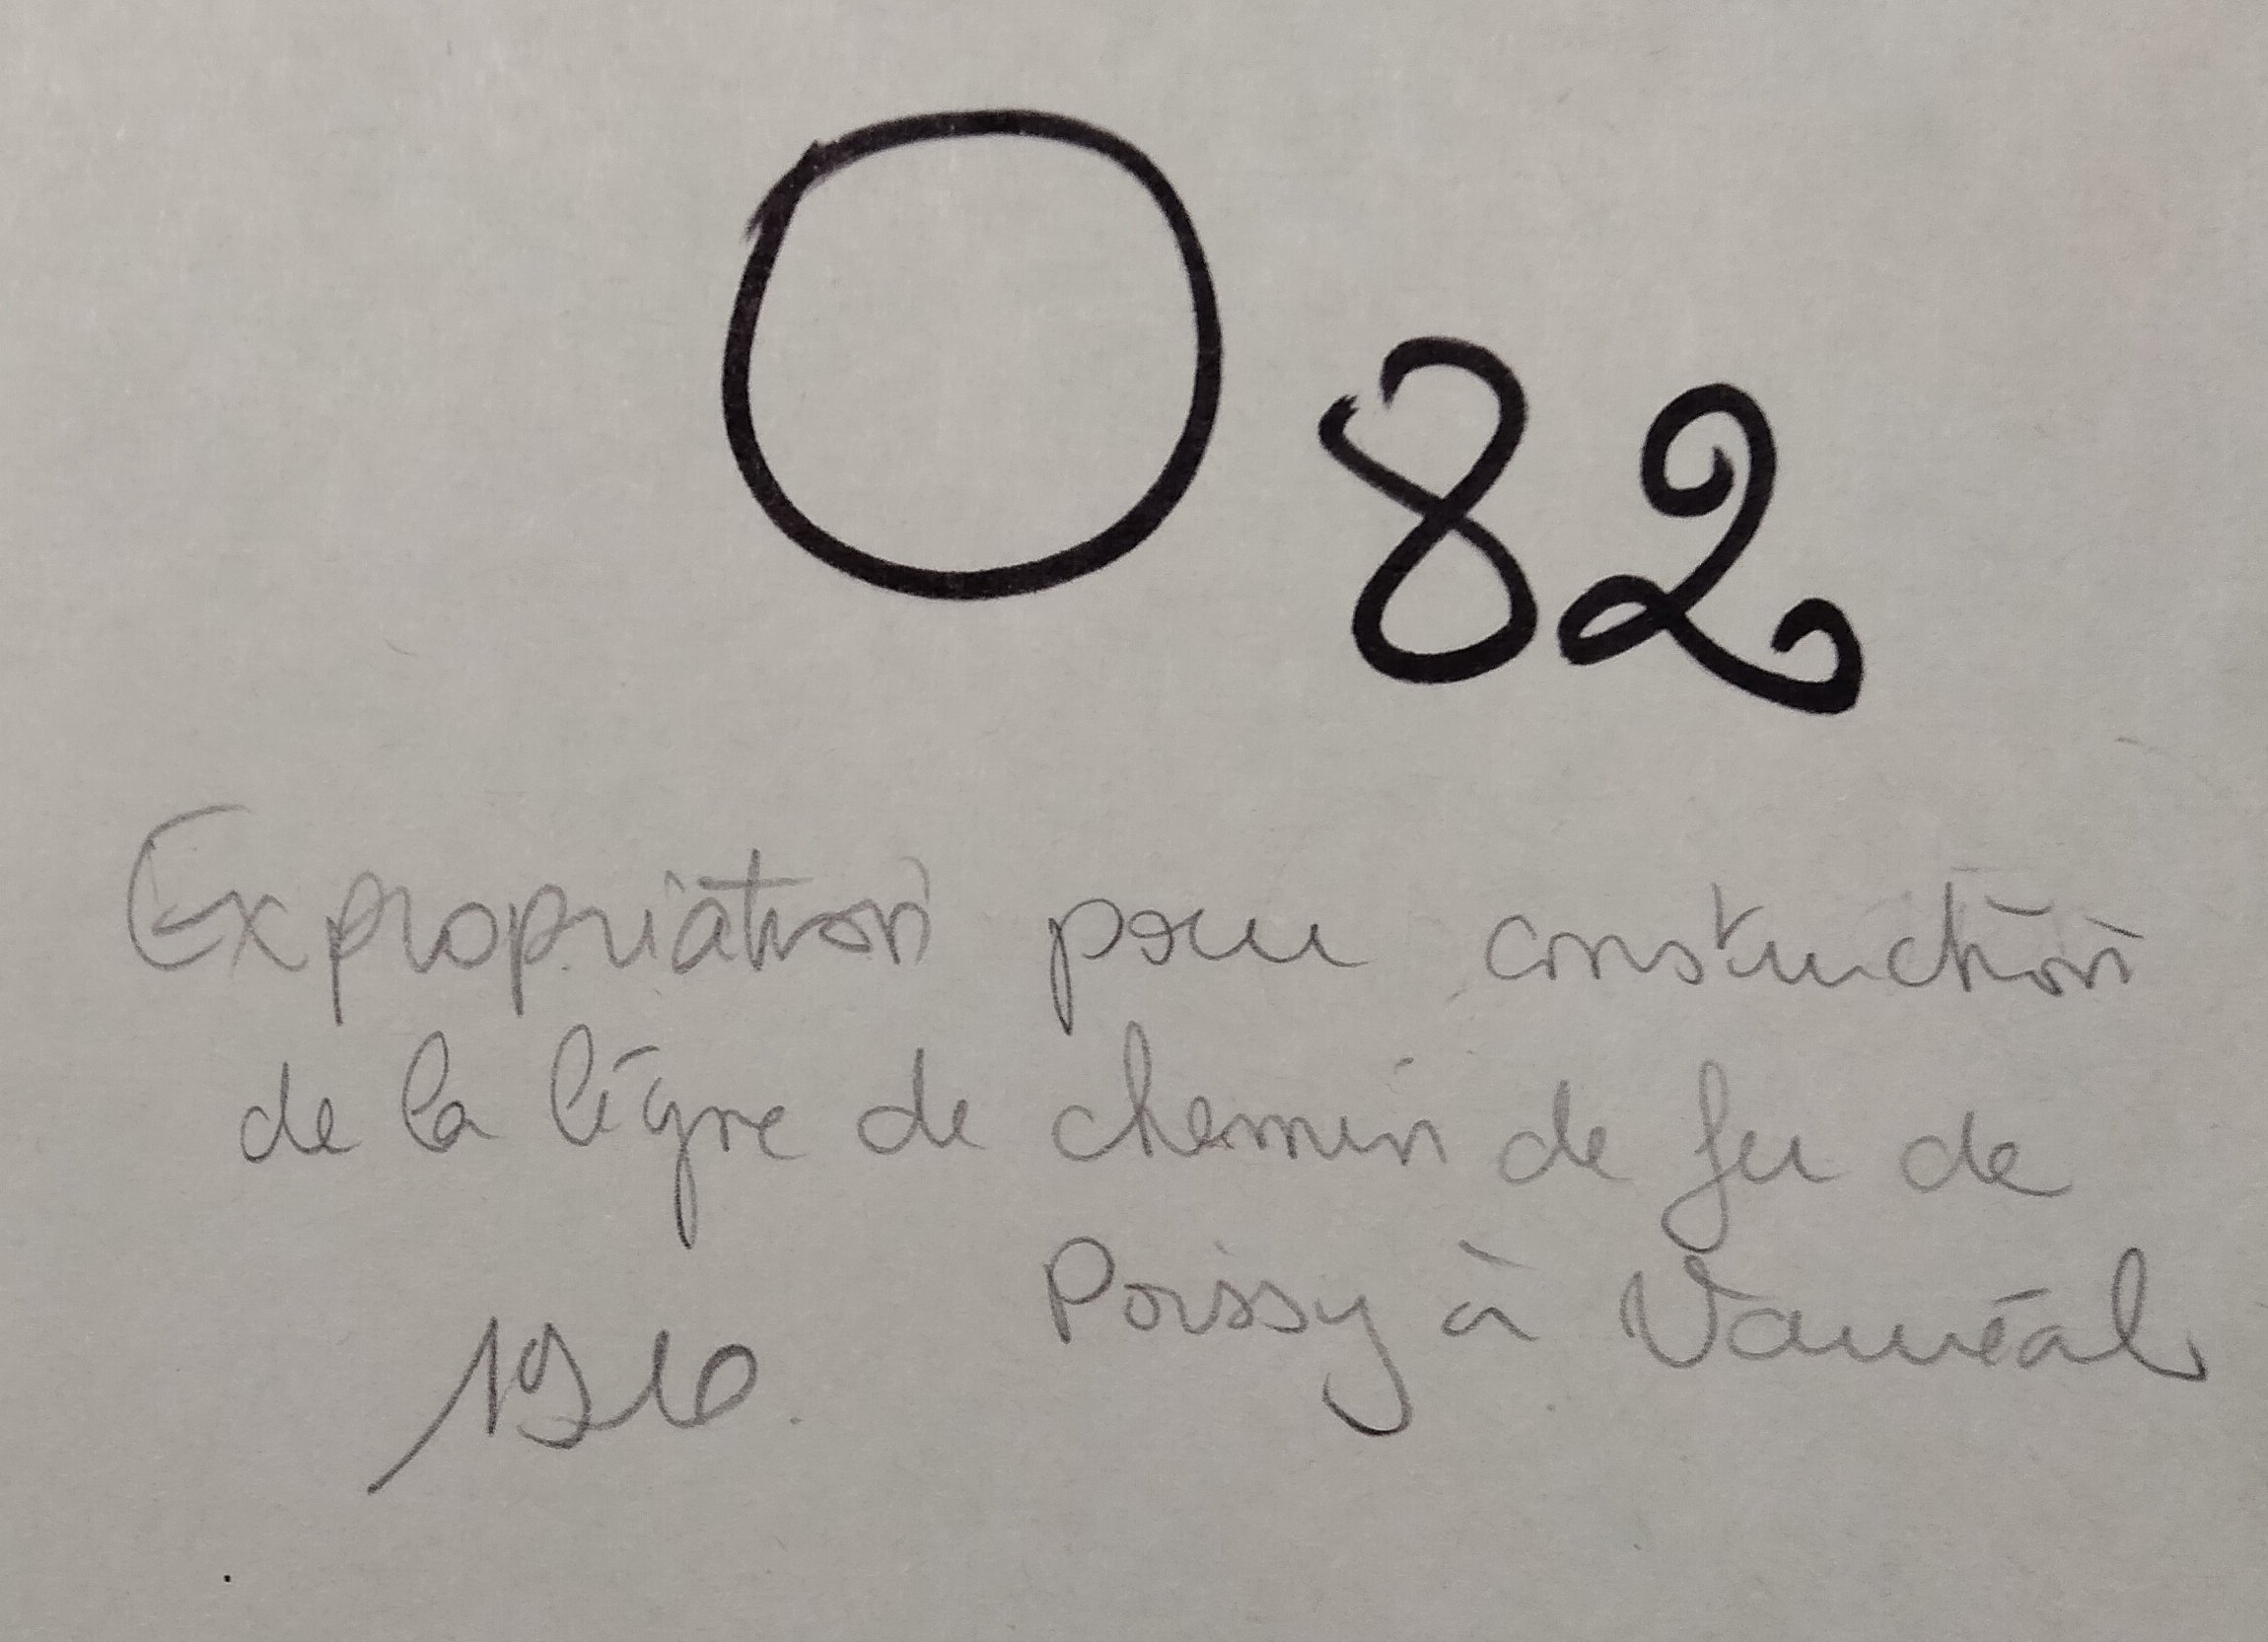 O 82
Expropriation pour construction
de la ligne de chemin de fer de
Poissy à Vauréal